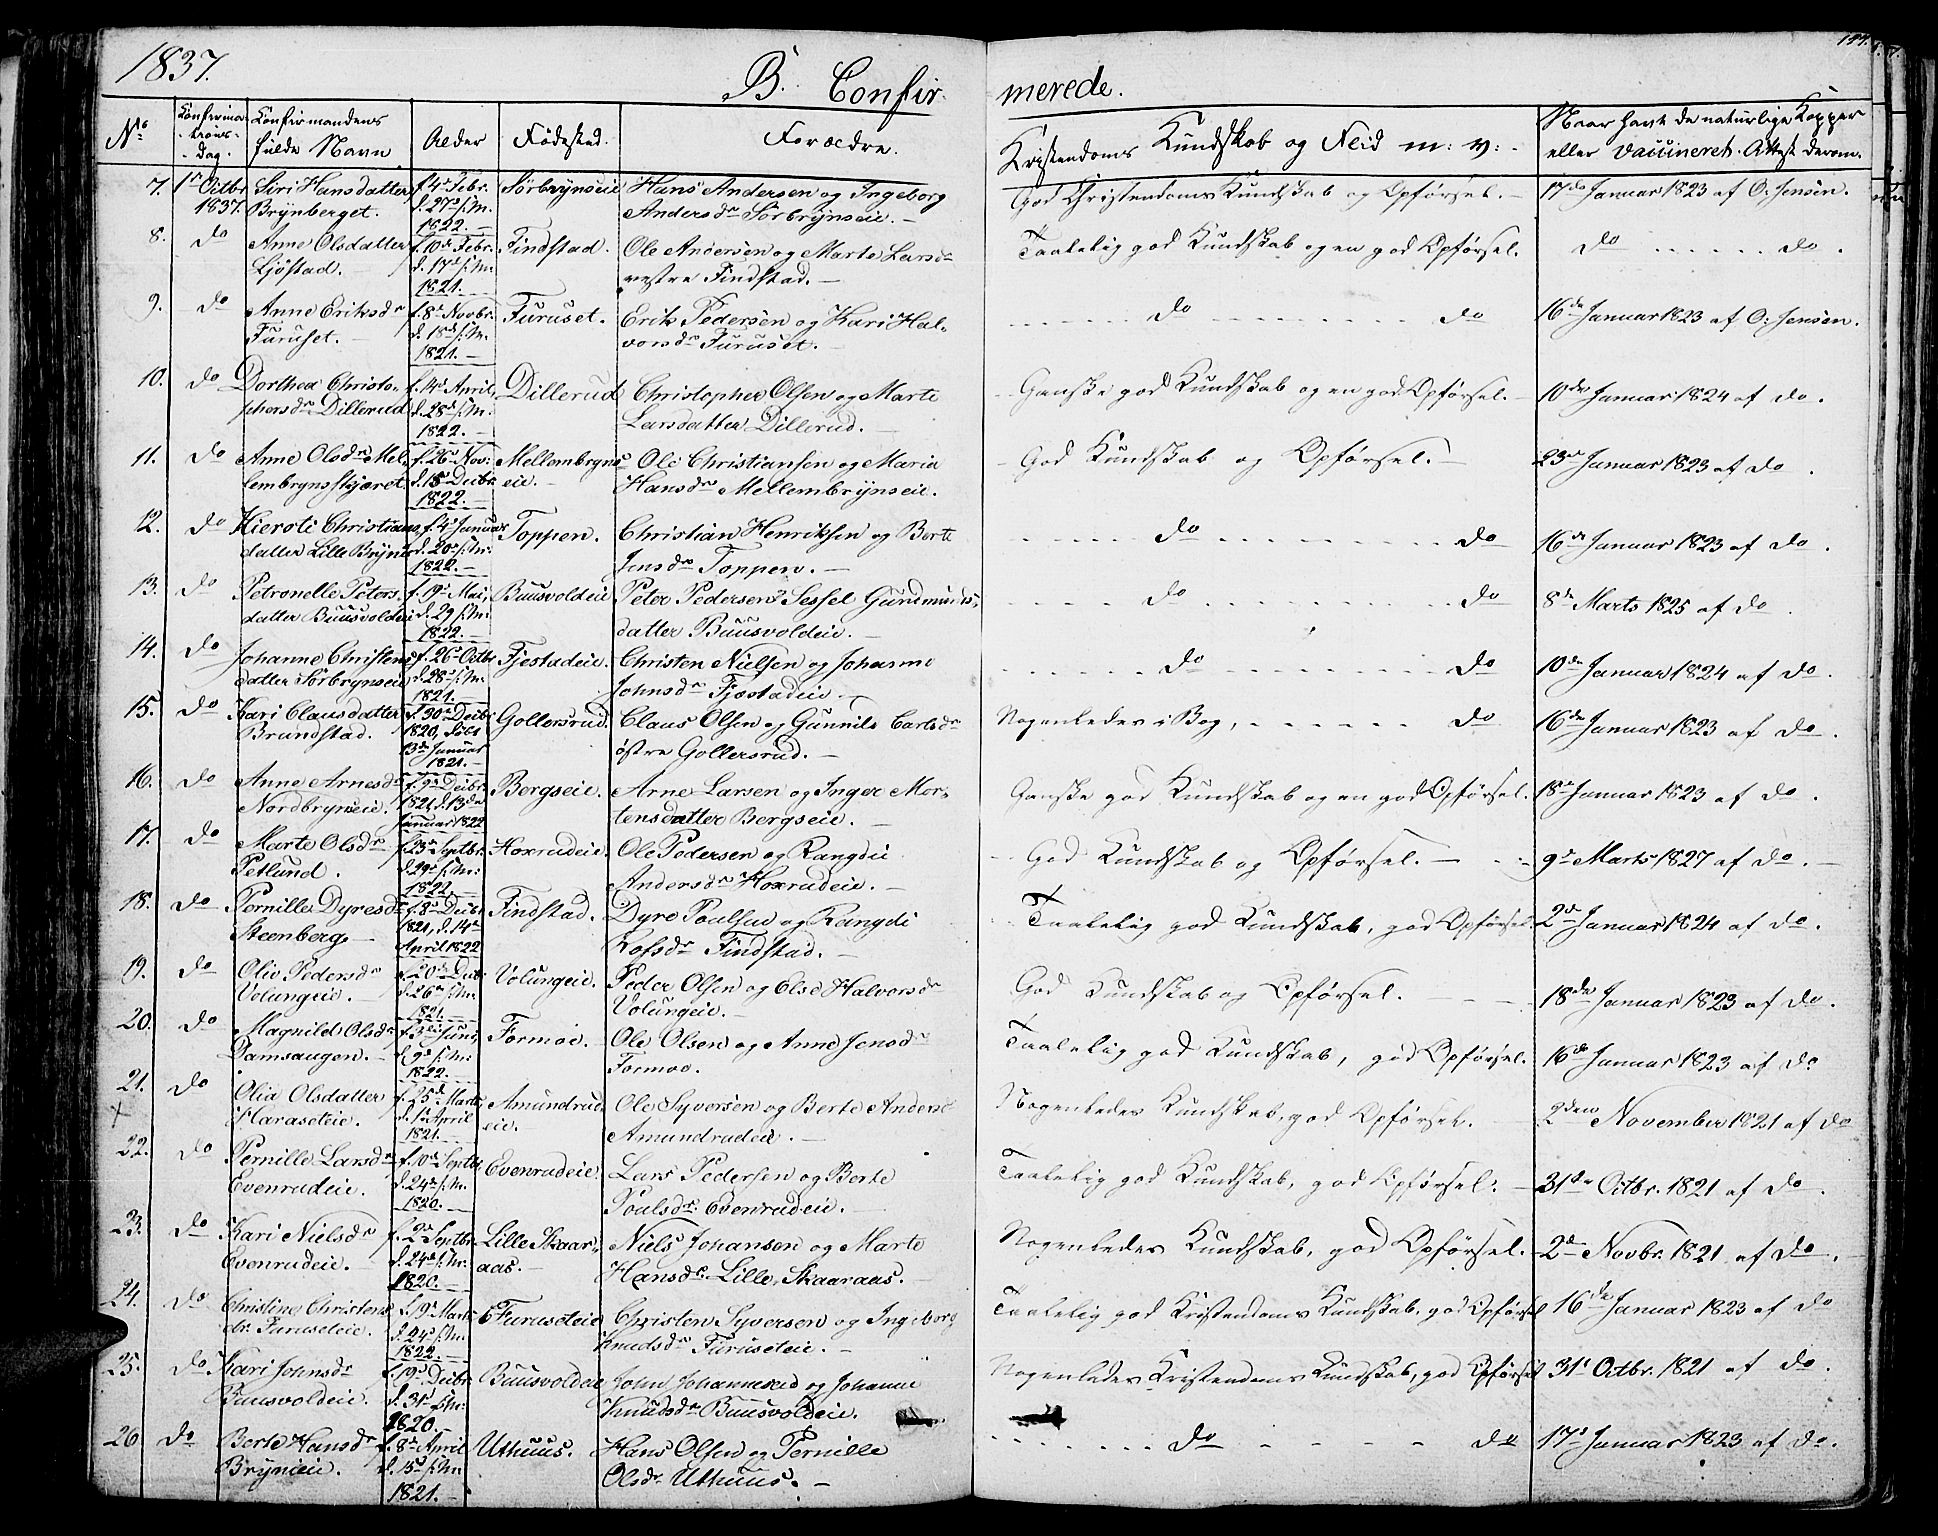 1837.
B. Confir-
merede.
No
Confirma-
tions-
Dag.
Confirmandens
fulde Navn
Alder
Fødested.
Forældre.
Kristendoms Kundskab og Flid m: v:
Naar havt de naturlige Kopper
eller vaccineret. Attest derom.
7. 1ste Octbr 1837. Siri Hansdatter
Brynberget.
f. 4de Febr.
d. 27de s. M.
1822.
Sørbrynseie
Hans Andersen og Ingeborg
Andersdr Sørbrynseie.
God Christendoms Kundskab og Opførsel.
17de Januar 1823 af O: Jensen.
8. do Anne Olsdatter
Ljøstad.
f. 10de Febr.
d. 17de s. M.
1821.
Findstad.
Ole Andersen og Marte Larsdr
vestre Findstad.
Taalelig god Kundskab og en god Opførsel.
do do.
9. do Anne Eriksdr
Furuset.
f. 8de Novbr.
d. 18de s. M.
1821.
Furuset.
Erik Pedersen og Kari Hal-
vorsdr Furuset.
do do
16de Januar 1823 af O: Jensen.
10. do Dorthea Christo-
phersdr Dillerud
f. 14de April,
d. 28de s. M.
1822.
Dillerud
Christopher Olsen og Marte
Larsdatter Dillerud.
Ganske god Kundskab og en god Opførsel.
10de Januar 1824 af do.
11. do Anne Olsdr Mel-
lembrynsskjæret.
f. 26de Nov:
d. 18de Decbr
1822.
Mellembryns
eie.
Ole Christiansen og Maria
Hansdr Mellembrynseie.
God Kundskab og Opførsel.
23de Januar 1823 af do.
12. do Kieroti Christians
datter Lille Bryn
f. 4de Januar
d. 20de s. M:
1822.
Toppen.
Christian Henriksen og Berte
Jensdr Toppen.
do do
16de Januar 1823 af do.
13. do Petronelle Peters
datter Buusvoldeie
f. 19de Mai,
d. 29 s. M:
1822.
Buusvoldeie
Peter Pedersen, Sessel Gundmunds
datter Buusvoldeie.
do do
8de Marts 1825 af do.
14. do Johanne Christens
datter Sørbrynseie
f. 26de Octbr
d. 28de s. M:
1821.
Fjestadeie.
Christen Nielsen og Johanne
Johnsdr Fjestadeie.
do do
10de Januar 1824 af do.
15. do Kari Clausdatter
Brundstad.
f. 30de Decbr
1820, døbt
13de Januar
1821.
Gollersrud.
Claus Olsen og Gunnild Carlsdr
østre Gollersrud.
Nogenledes i Bog, do
16de Januar 1823 af do.
16. do Anne Arnesdr
Nordbrynseie.
f. 9de Decbr.
1821, d. 13de
Januar 1822
Bergseie.
Arne Larsen og Inger Mor-
tensdatter Bergseie.
Ganske god Kundskab og en god Opførsel.
18de Januar 1823 af do.
17. do Marte Olsdr
Petlund.
f. 23de Septbr.
d. 29de s. M:
1822.
Hoxrudeie.
Ole Pedersen og Rangdi
Andersdr Hoxrudeie.
God Kundskab og Opførsel.
9de Marts 1827 af do.
18. do Pernille Dyresdr
Steenberg
f. 8de Decbr
1821, d. 14de
April 1822
Findstad.
Dyre Poulsen og Rangdi
Rolfsdr Findstad.
Taalelig god Kundskab, god Opførsel
2de Januar 1824 af do.
19. do Olie Pedersdr
Volungeie.
f. 20de Decb:
d. 26de s. M:
1821.
Volungeie.
Peder Olsen og Else Halvorsdr
Volungeie.
God Kundskab og Opførsel.
18de Januar 1823 af do.
20. do Magnild Olsdr
Damsaugen.
f. 3die Juni,
d. 9de s. M:
1822.
Formoe.
Ole Olsen og Anne Jensdr
Formoe.
Taalelig god Kundskab, god Opførsel.
16de Januar 1823 af do
21. do Olia Olsdatter
Haraseteie.
f. 25de Marts,
d. 1ste April
1821.
Amundrud
eie.
Ole Syversen og Berte Anders
Amundrudeie.
Nogenledes Kundskab, god Opførsel.
2den November 1821 af do
22. do Pernille Larsdr
Evenrudeie.
f. 10de Septbr
d. 24de s. M.
1820.
Evenrudeie.
Lars Pedersen og Berte
Poulsdr. Evenrudeie.
Taalelig god Kundskab, god Opførsel.
31de Octbr. 1821 af do.
23. do Kari Nielsdr
Evenrudeie.
f. 2de Septbr
d. 24de s. M.
1820.
Lille Skaar-
aas.
Niels Johansen og Marte
Hansdr Lille Skaaraas.
Nogenledes Kundskab, god Opførsel.
2de Novbr. 1821 af do.
24. do Christine Christens
dr. Furuseteie.
f. 19de Marts
d. 24de s. M:
1822.
Furuseteie
Christen Syversen og Ingeborg
Knudsdr Furuseteie.
Taalelig god Kristendoms Kundskab, god Opførsel
16de Januar 1823 af do
25. do Kari Johnsdr
Buusvoldeie.
f. 19de Decbr.
d. 31de s. M:
1820.
Buusvoldeie
John Johannesen og Johanne
Knudsdr Buusvoldeie.
Nogenledes Kristendoms Kundskab, god Opførsel
31te Octbr. 1821 af do.
26 do Berte Hansdr
Brynieie.
f. 8de April
d. 15de s. M:
1821.
Uthuus.
Hans Olsen og Pernille
Olsdr Uthuus.
do do
17de Januar 1823 af do.